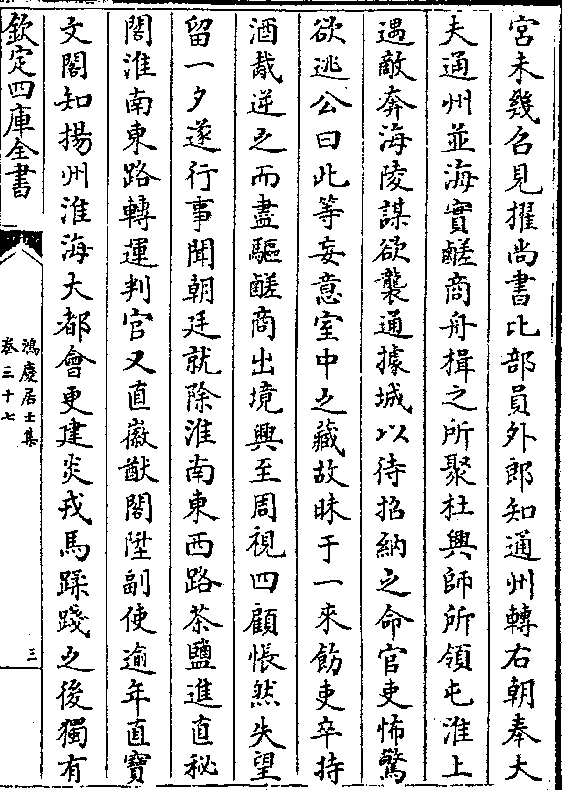 宮未幾召見擢尚書比部員外郎知通州轉右朝奉大
夫通州並海實鹺商舟楫之所聚杜興師所領屯淮上
遇敵奔海陵謀欲襲通據城以待招納之命官吏怖驚
欲逃公曰此等妄意室中之藏故昧于一來飭吏卒持
酒胾逆之而盡驅鹺商出境興至周視四顧悵然失望
留一夕遂行事聞朝廷就除淮南東西路茶鹽進直秘
閣淮南東路轉運判官又直徽猷閣陞副使逾年直寶
文閣知揚州淮海大都會更建炎戎馬蹂踐之後獨有
欽定四庫全書
鴻慶居士集
卷三十七
三